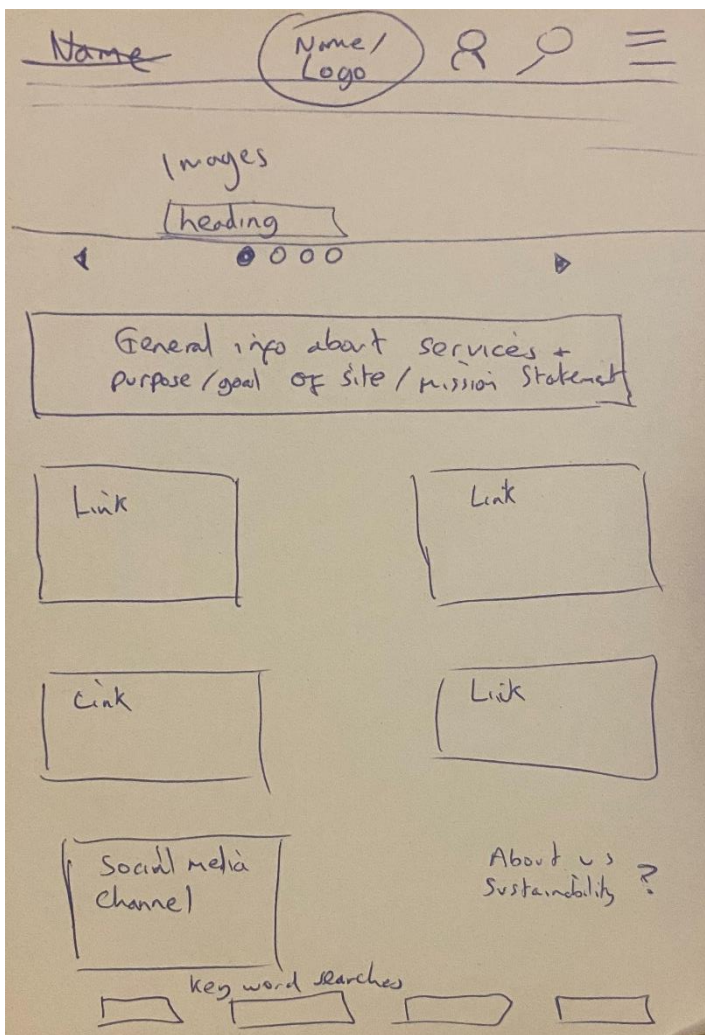 Name
Name/
Logo
Images
heading
General info about services +
purpose/goal of site/mission Statement
Link
Link
Link
Link
Social media
Channel
About us
Sustainability ?
key word searches